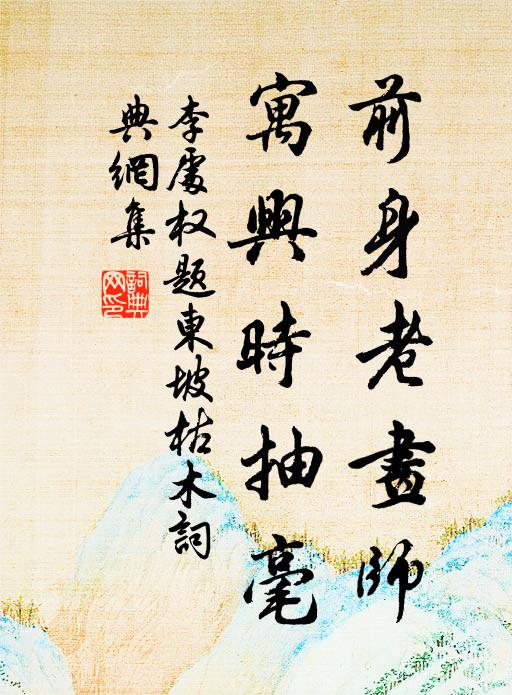 前身老畫師
寓興時抽毫
李處权題東坡枯木詞
典網集
詞典网印